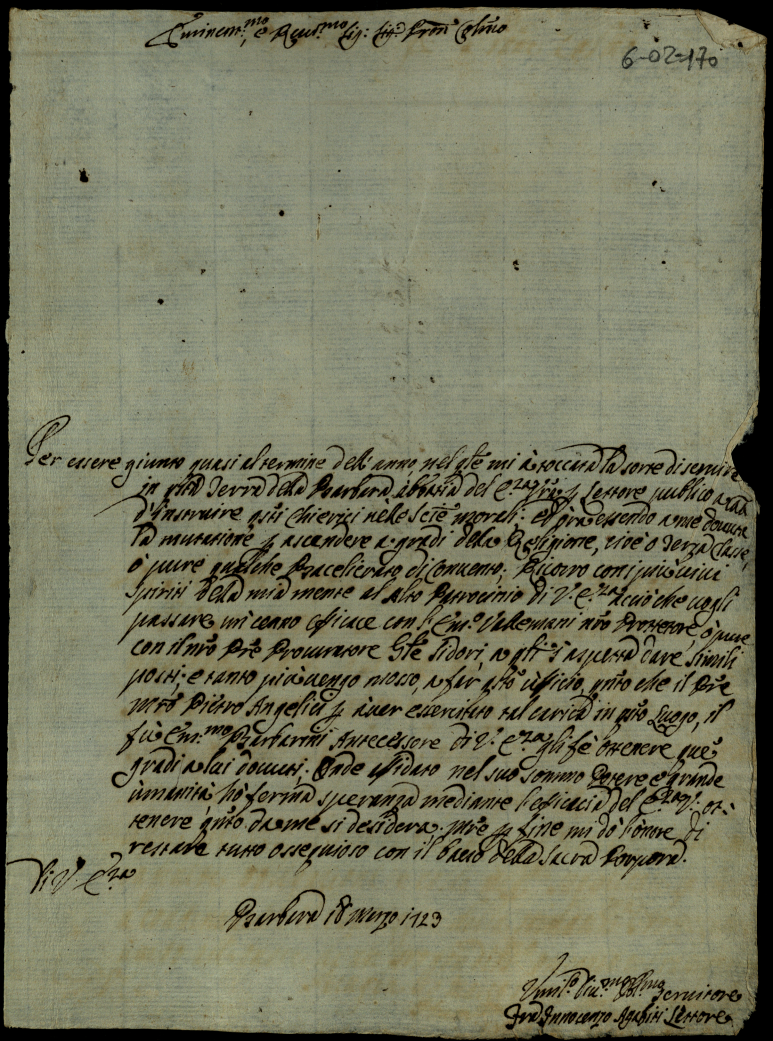 Eminen.mo, e Reve.mo Sig: Sig.r Pron Colmo
6-02-170
Per essere giunto quasi al termine dell'anno, nel qle mi è toccata la sorte di servire
in qta Terra della Barbara abbatia del E.za Vra p Lettore publico
d'Instruire qsti Chierici nelle Scie morali; et pra essendo a me dovuta
la mutatione p ascendere a gradi della Religione, cive o Terza Classe,
ò pure qualche Bacelierato di Convento; Ricorro con i più vivi
spiriti della mia mente al alto Patrocinio di V.E.za acciò che vogli
passare un cenno efficace con l'Em. Vallemani nro Protettore, ò pure
con il nro Pre Procuratore Gle Sidori, a qli s'aspetta dare simili
posti; e tanto più vengo mosso, a far qsto ufficio, qnto che il Pre
mro Pietro Angelici p aver esercitato tal carica in qsto Luogo, il
fù Em.mo Barbarini Antecessore di V. E.za gli fè ottenere que
gradi a lui dovuti; Onde affidato nel suo sommo Potere e grande
umanità hò ferma speranza mediante l'efficacia del E.za V. ot=
tenere qnto da me si desidera. mre p fine mi dò l'onore di
restare tutto ossequioso con il bacio della Sacra Porpora.
Di V. E.za
Barbara 18 Marzo 1723
Umil.o Div.mo Servitore
Fra Innocenzo Agapiti Lettore